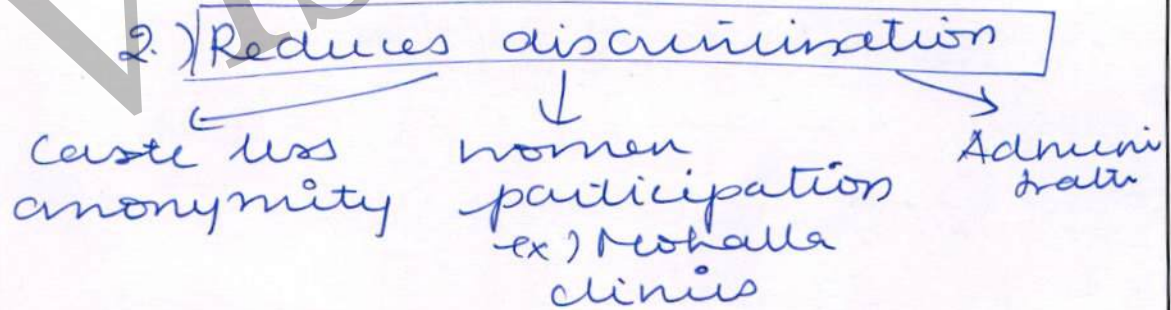 2.) Reduces discrimination
Caste less anonymity
women participation
ex) Mohalla clinics
Admini